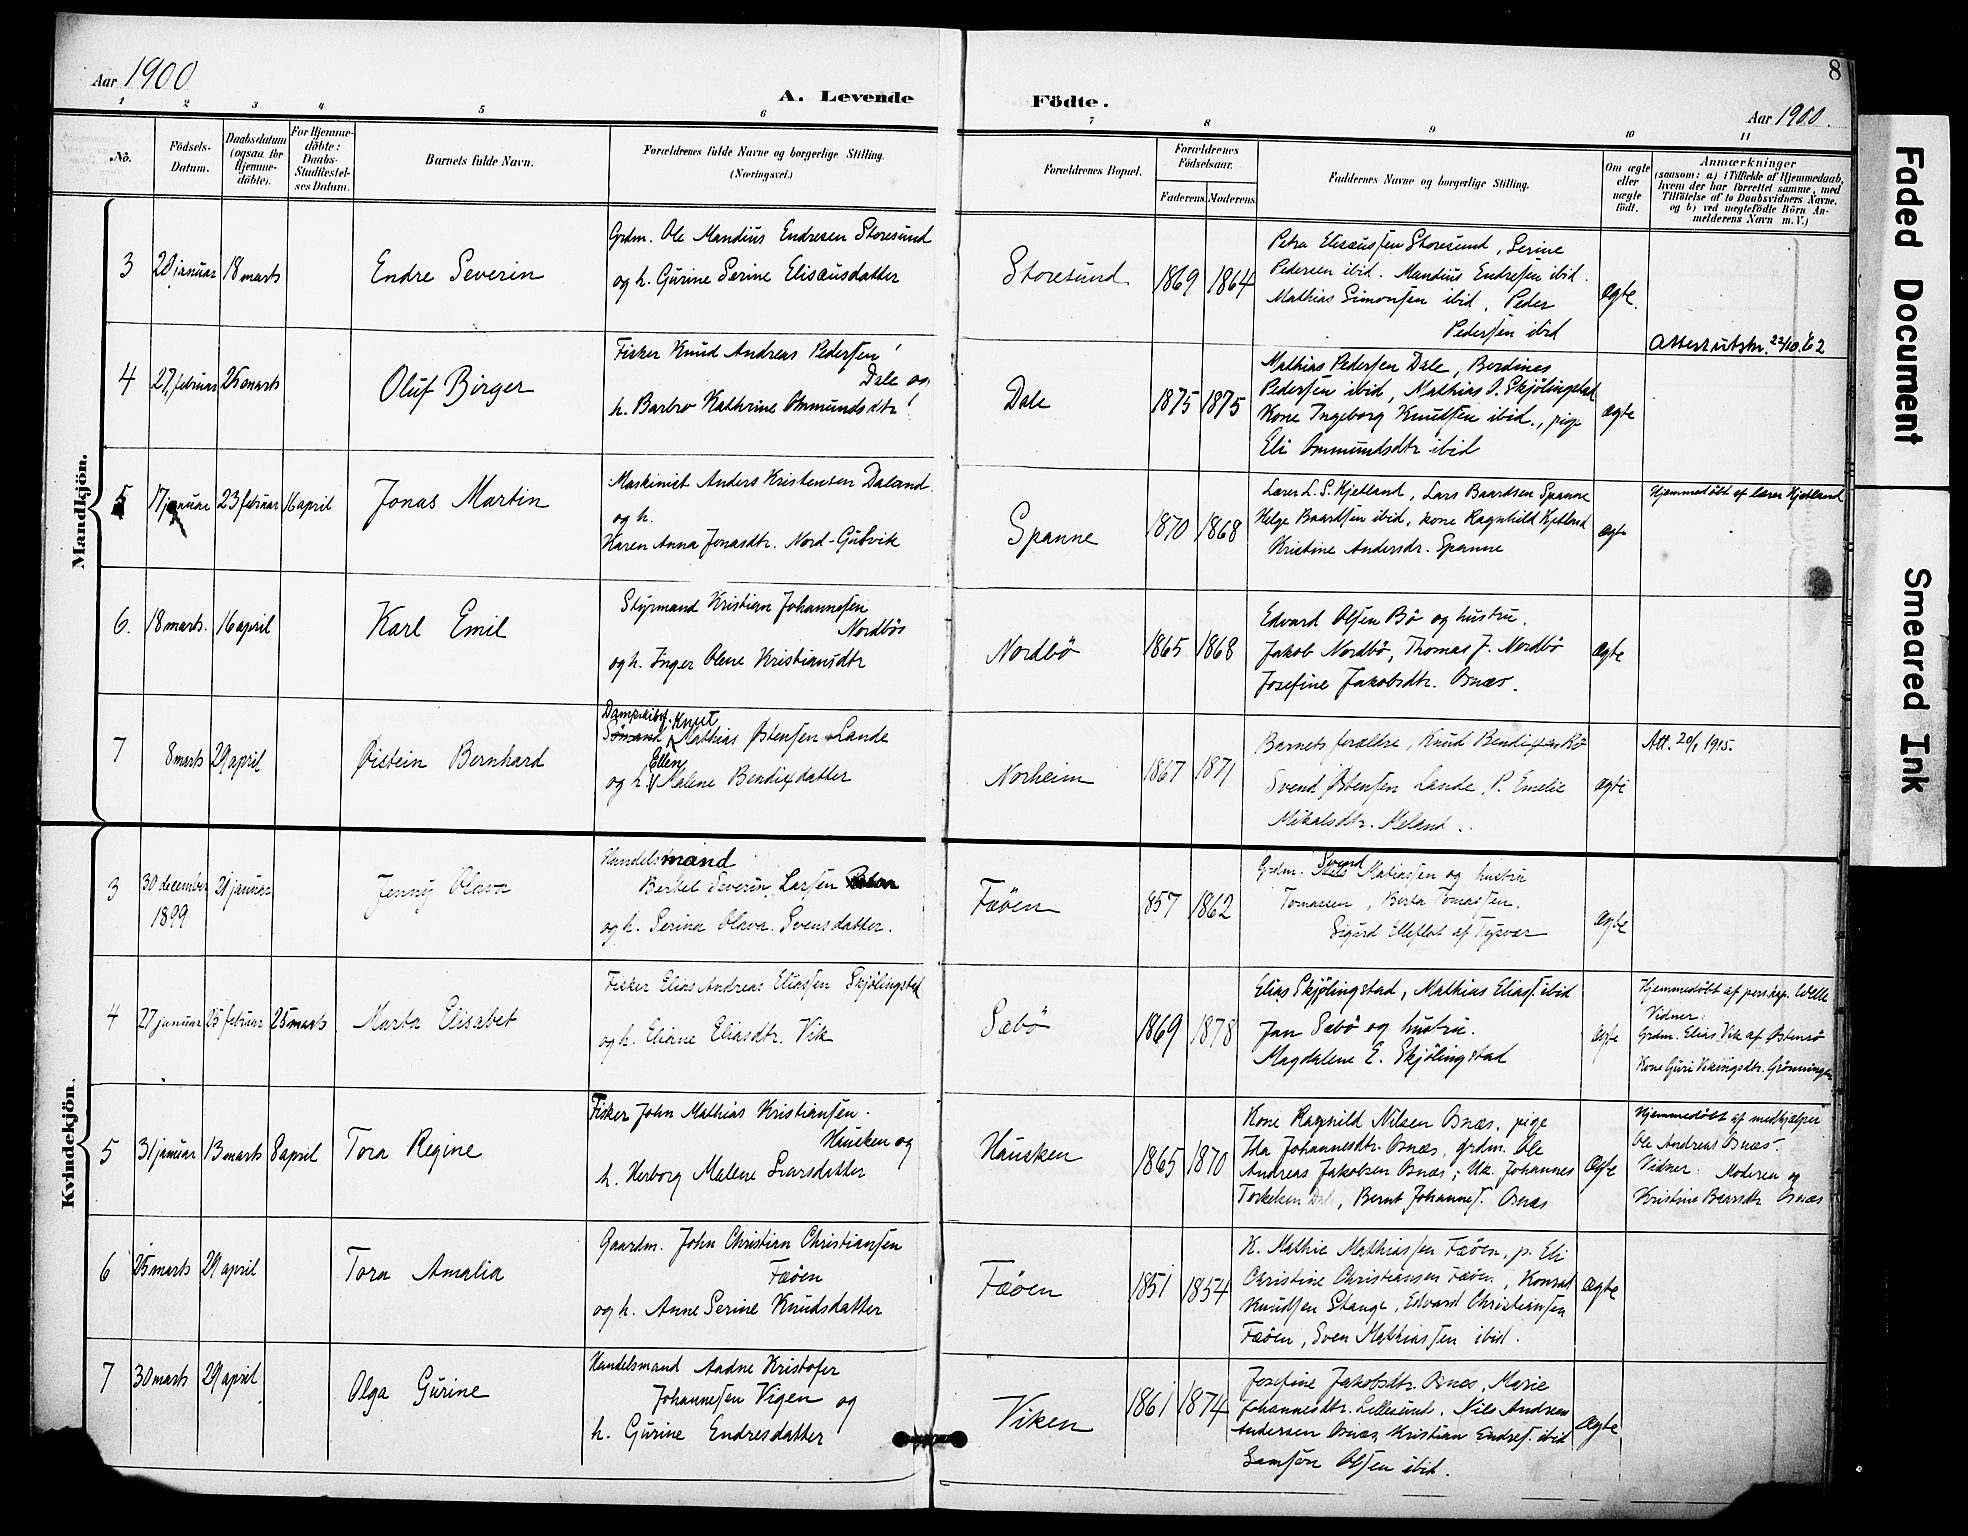 Aar 1900
A. Levende Födte.
Aar 1900.
8
1 2 3 4 5 6 7 8 9 10 11
No.
Födsels-Datum.
Daabsdatum (ogsaa for Hjemmedöbte).
For Hjemmedöbte: Daabs-Stadfestelses Datum.
Barnets fulde Navn.
Forældrenes fulde Navne og borgerlige Stilling.
(Næringsvei.)
Forældrenes Bopæl.
Forældrenes Födselsaar.
Faderens Moderens
Faddernes Navne og borgerlige Stilling.
Om ægte eller uægte födt.
Anmærkninger
(saasom: a) i Tilfælde af Hjemmedaab, hvem der har forrettet samme, med Tilföielse af to Daabsvidners Navne, og b) ved uægtefödte Börn Anmelderens Navn m. V.)
Mandkjön.
3 20 januar 18 marts
Endre Severin
Grdm. Ole Mandius Endresen Storesund
og h. Gurine Serine Elisæusdatter
Storesund 1869 1864
Petra Elisæussen Storesund, Serine
Pedersen ibid. Mandius Endressen ibid.
Mathias Simonsen ibid, Peder
Pedersen ibid
ægte.
Attest utstr. 22/10.62
4 27 februar 25 marts
Oluf Birger
Fisker Knud Andreas Pedersen
Dale og
h. Barbro Kathrine Ommundsdtr
Dale 1875 1875
Mathias Pedersen Dale, Berdines
Pedersen ibid, Mathias O. Skjölingstad
Kone Ingeborg Knudsen ibid., pige
Eli Ommundsdtr ibid
ægte
5 17 januar 23 februar 16 april
Jonas Martin
Maskinist Anders Kristensen Daland
og h.
Karen Anna Jonasdtr. Nord-Gubvik
Spanne 1870 1868
Lærer L. S. Kjetland, Lars Baardsen Spanne
Helge Baardsen ibid, kone Ragnhild Kjetland
Kristine Andersdr. Spanne
ægte
Hjemmedöbt af lærer Kjetland
6. 18 marts. 16 april
Karl Emil
Styrmand Kristian Johannesen
Nordbö
og h. Inger Olene Kristiansdtr
Nordbö 1865 1868
Edvard Olsen Bö og hustru.
Jakob Nordbö, Thomas J. Nordbö
Josefine Jakobsdtr. Osnæs.
ægte
7 8 marts 29 april
Øistein Bernhard
Dampskibsf. Knut
Sömand Mathias Østensen Lande
Ellen
og h. Malene Bendixdatter
Norheim 1867 1871
Barnets forældre, Knud Bendixsen Bö
Svend Østensen Lande, P. Emelie
Mikalsdtr. Meland.
ægte
Att. 20/1 1915.
Kvindekjön.
3 30 december 1899 21 januar
Jenny Olava
Handelsmand
Bertel Severin Larsen
og h. Serina Olava Svensdatter.
Fæöen 857 1862
Grdm. Svend Matiassen og hustru
Tomasen, Berta Tomassen.
Sigurd Elleflot af Tysvær
ægte
4 27 januar 25 februar 25 marts
Marta Elisabet
Fisker Elias Andreas Eliassen Skjölingstad
og h. Eliane Eliasdtr. Vik
Sæbö 1869 1878
Elias Skjölingstad, Mathias Elias. ibid
Jan Sæbö og hustru.
Magdalene E. Skjölingstad
ægte
Hjemmedöbt af pers.kap. Welle
Vidner:
Grdm. Elias Vik af Østensö
Kone Guri Vikingsdtr. Grönningen
5 31 januar 13 marts 8 april
Tora Regine
Fisker John Mathias Kristiansen.
Hausken og
h. Herborg Malene Larsdatter
Hausken 1865 1870
Kone Ragnhild Nilsen Osnæs, pige
Ida Johannesdtr. Osnæs, grdm. Ole
Andreas Jakobsen Osnæs; Uk. Johannes
Torkelsen Dale, Bernt Johannes. Osnæs
ægte
Hjemmedöbt af medhjælper
Ole Andreas Osnæs.
Vidner: Moderen og
Kristine Baarsdtr Osnæs
6 25 marts 29 april
Tora Amalia
Gaardm. John Christian Christiansen
Fæöen
og h. Anne Serine Knudsdatter
Fæöen 1851 1854
K. Mathie Mathiassen Fæöen, p. Eli
Christine Christiansen Fæöen, Konrad
Knudsen Stange, Edvard Christiansen
Fæöen, Sven Mathiassen ibid.
ægte
7 30 marts 29 april
Olga Gurine
Handelsmand Aadne Kristofer
Johannesen Vigen og
h. Gurine Endresdatter
Viken 1861 1874
Josefine Jakobsdtr. Osnes, Marie
Johannesdtr. Lillesund, Nils Andreas
Andersen Osnæs, Kristian Endres. ibid
Samson Olsen ibid.
ægte
Faded Document
Smeared Ink